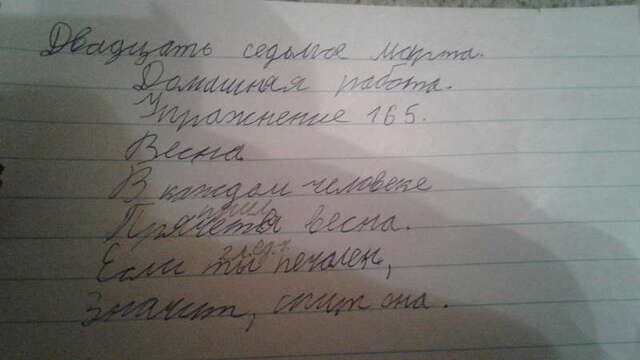 Двадцать седьмое марта.
Домашняя работа.
Упражнение 165.
Весна
В каждом человеке
Прячется весна.
Если ты печален,
Значит, спит она.